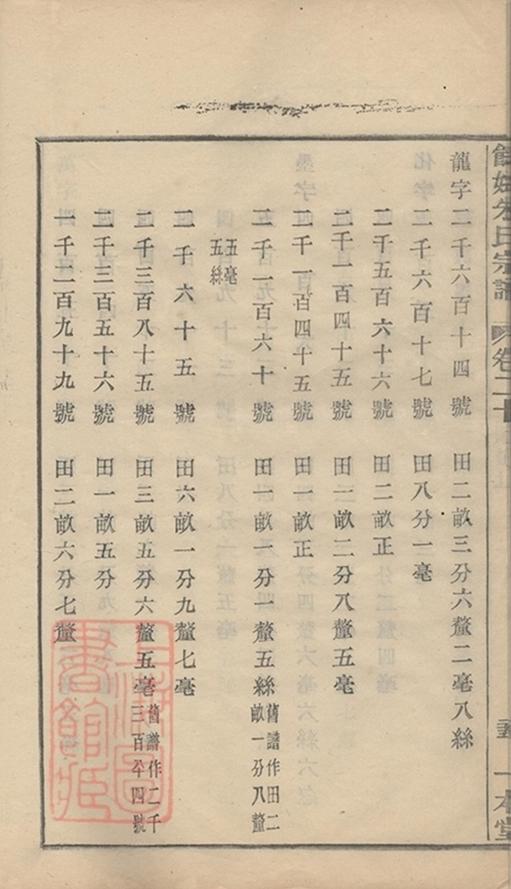 餘姚朱氏宗譜 卷二十 一本堂
龍字二千六百十四號 田二畝三分六釐二毫八絲
二千六百十七號 田八分一毫
二千五百六十六號 田二畝正
二千一百四十五號 田一畝二分八釐五毫
二千一百四十五號 田一畝正
二千一百六十號 田一畝一分一釐五絲 舊譜作田二畝一分八釐
五毫五絲
二千六十五號 田六畝一分九釐七毫
二千三百八十五號 田三畝五分六釐五毫 舊譜作二千三百八十四號
二千三百五十六號 田一畝五分
一千二百九十九號 田二畝六分七釐